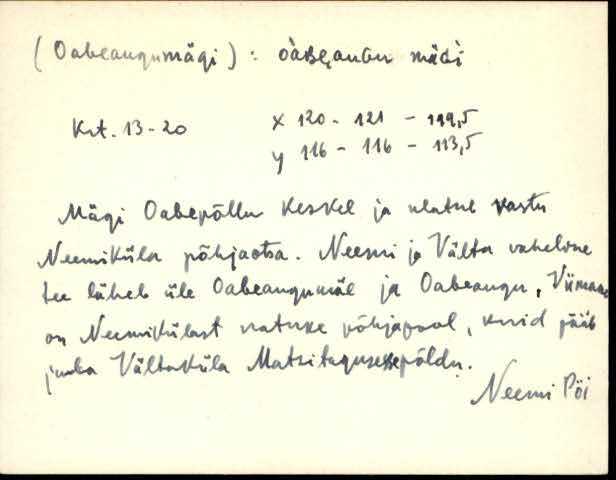 (Oabeaugumägi) : oaʙeauɢu mäɢi
Krt. 13-20 x 120 - 121 - 119,5
y 116 - 116 - 113,5
Mägi Oabepõllu keskel ja ulatub vastu
Neemiküla põhjaotsa. Neemi ja Välta vaheline
tee läheb üle Oabeaugumäe ja Oabeaugu, Viimane
on Neemikülast natuke põhjapool, kuid jääb
juba Vältaküla Matsitaguse põldu.
Neemi Pöi